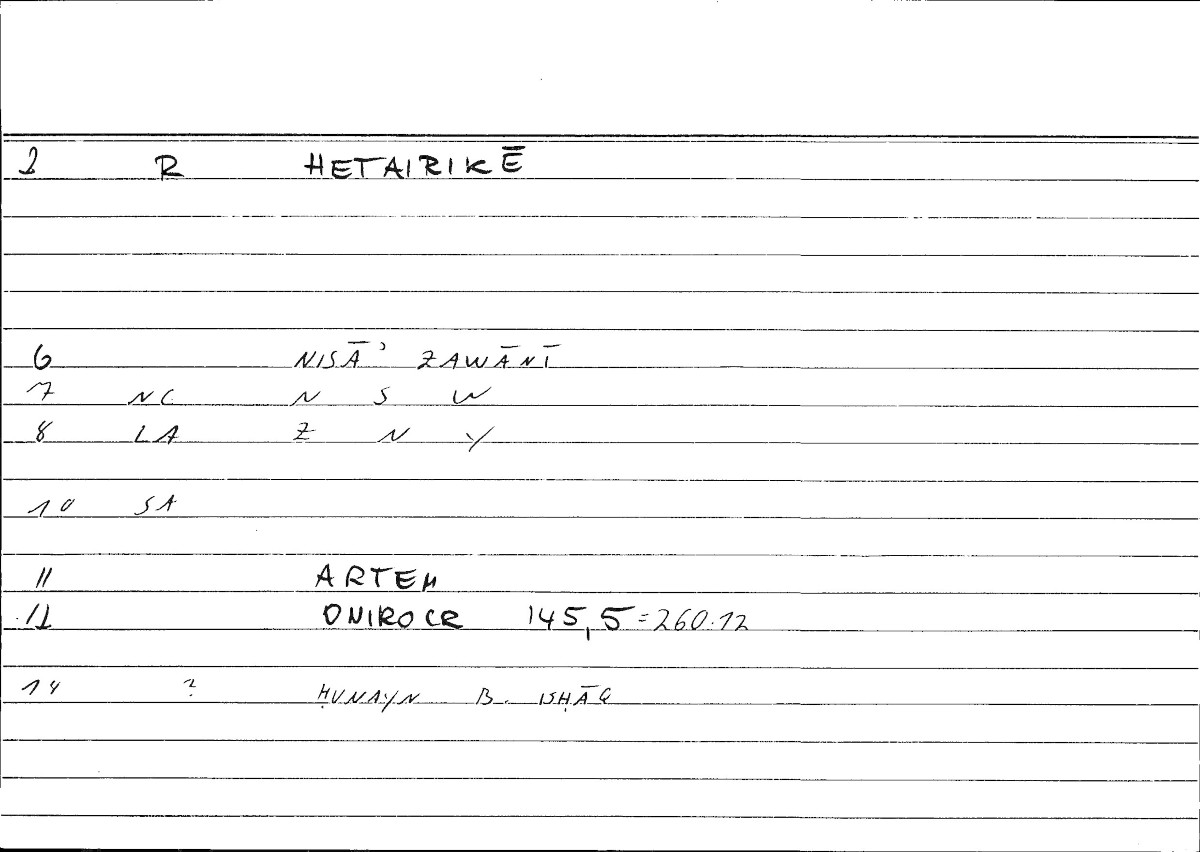 2 R HETAIRIKĒ
6 NISĀʾ ZAWĀNĪ
7 NC N S W
8 LA Z N Y
10 SA
11 ARTEM
12 ONIROCR 145,5 = 260.12
14 ? ḤUNAYN B. ISḤĀQ